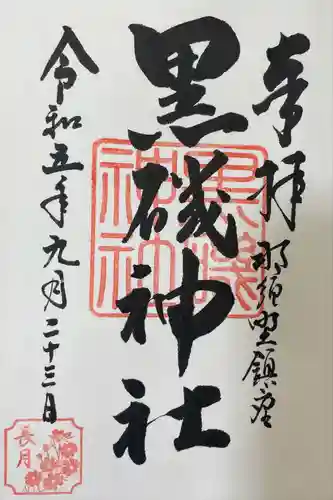 奉拝
那須野鎮座
黒磯神社
黒磯神社
令和五年九月二十三日
長月